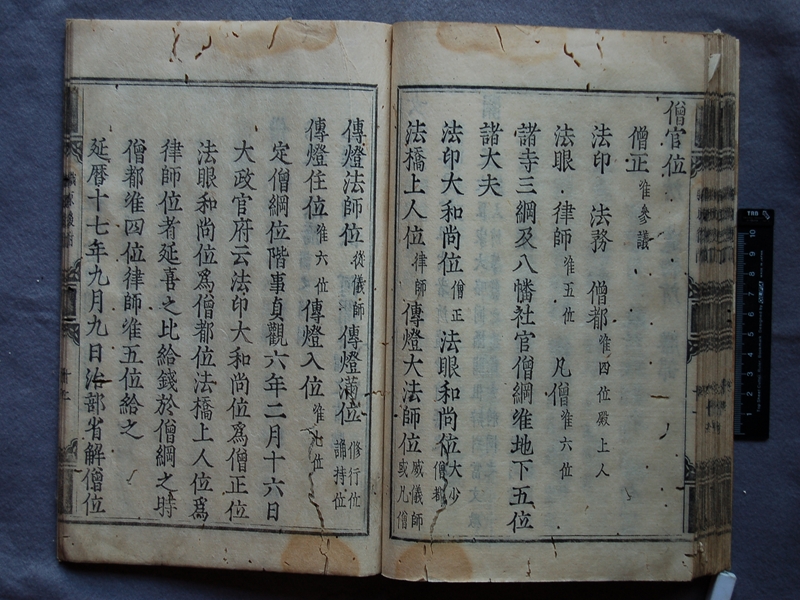 僧官位
僧正准參議
法印 法務 僧都准四位殿上人
法眼 律師准五位 凡僧准六位
諸寺三綱及八幡社官僧綱准地下五位
諸大夫
法印大和尚位僧正法眼和尚位大少僧都
法橋上人位律師傳燈大法師位威儀師或凡僧
傳燈法師位從儀師傳燈滿位修行位誦持位
傳燈住位准六位傳燈入位准七位
定僧綱位階事貞觀六年二月十六日
大政官府云法印大和尚位爲僧正位
法眼和尚位爲僧都位法橋上人位爲
律師位者延喜之比給錢於僧綱之時
僧都准四位律師准五位給之
延曆十七年九月九日治部省解僧位